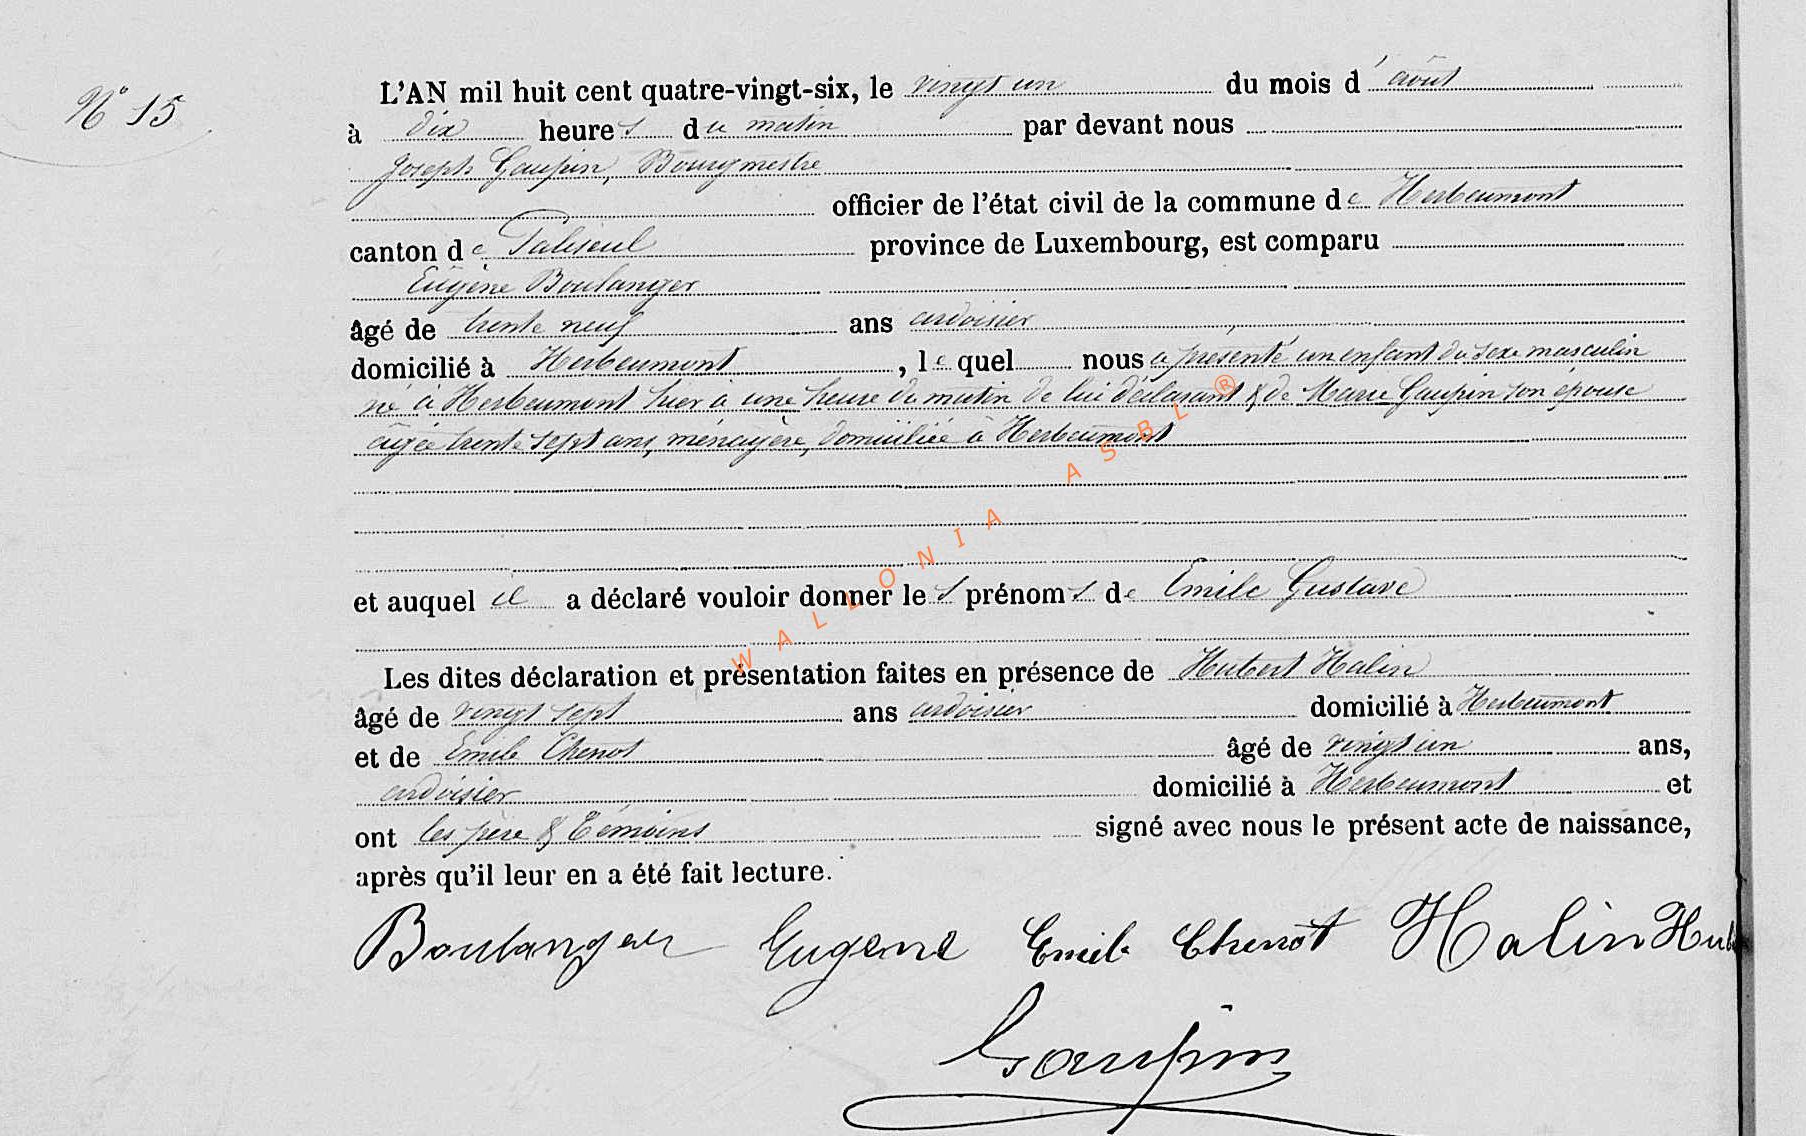 N° 15
L'AN mil huit cent quatre-vingt-six, le vingt un du mois d'août
à dix heures du matin par devant nous
Joseph Gaupin, Bourgmestre
officier de l'état civil de la commune de Herbeumont
canton de Paliseul province de Luxembourg, est comparu
Eugène Boulanger
âgé de trente neuf ans ardoisier
domicilié à Herbeumont, lequel nous a présenté un enfant du sexe masculin
né à Herbeumont hier à une heure du matin de lui déclarant & de Marie Gaupin son épouse
âgée trente sept ans, ménagère, domiciliée à Herbeumont
et auquel il a déclaré vouloir donner les prénoms de Emile Gustave
Les dites déclaration et présentation faites en présence de Hubert Halin
âgé de vingt sept ans ardoisier domicilié à Herbeumont
et de Emile Chenot âgé de vingt un ans,
ardoisier domicilié à Herbeumont et
ont les père & témoins signé avec nous le présent acte de naissance,
après qu'il leur en a été fait lecture.
Boulanger Eugene Emile Chenot Halin Hub
Gaupin
WALLONIA ASBL ®